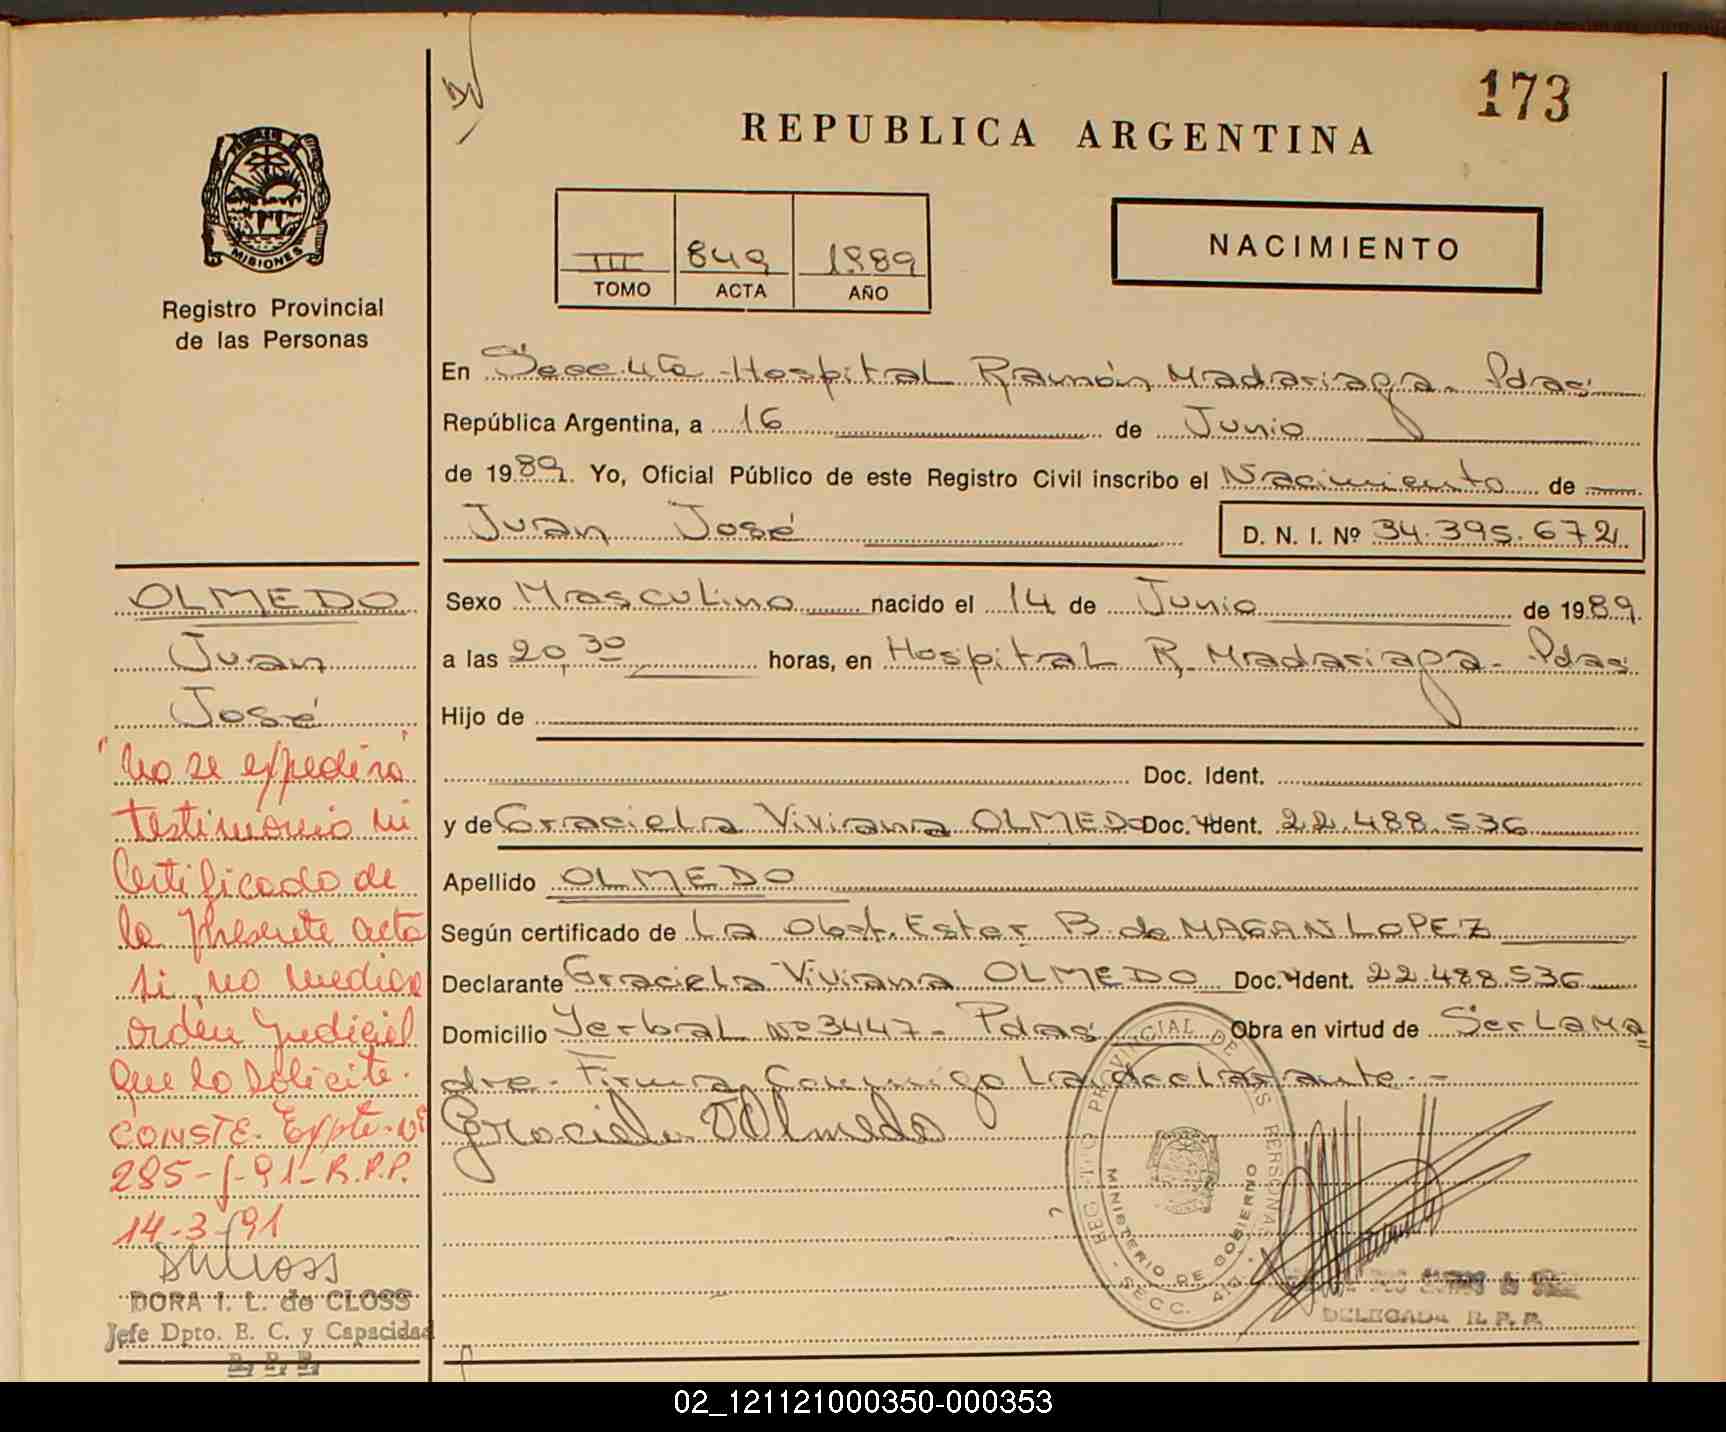 173
REPUBLICA ARGENTINA
MISIONES
Registro Provincial
de las Personas
III 849 1989
TOMO ACTA AÑO
NACIMIENTO
En Secc 4ta - Hospital Ramón Madariaga - Pdas
República Argentina, a 16 de Junio
de 1989. Yo, Oficial Público de este Registro Civil inscribo el Nacimiento de
Juan José D. N. I. Nº 34.395.672
Sexo Masculino nacido el 14 de Junio de 1989
a las 20,30 horas, en Hospital R. Madariaga - Pdas
Hijo de
Doc. Ident.
y de Graciela Viviana OLMEDO Doc. Ident. 22.488.536
Apellido OLMEDO
Según certificado de La Obst. Ester B. de MAGAN LOPEZ
Declarante Graciela Viviana OLMEDO Doc. Ident. 22.488.536
Domicilio Yerbal Nº 3447 - Pdas Obra en virtud de Ser La ma
dre - Firma Conmigo La declarante. -
Graciela V Olmedo
REGISTRO PROVINCIAL DE LAS PERSONAS
MINISTERIO DE GOBIERNO
SECC. 4ta
DELEGADA R. P. P.
OLMEDO
Juan
José
"No se expedira"
testimonio ni
Certificado de
la presente acta
si, no media
orden Judicial
que lo solicite.
CONSTE. Expte. Nº
285-J-91-R.P.P.
14-3-91
DORA I. L. de CLOSS
Jefe Dpto. E. C. y Capacidad
R. P. P.
02_121121000350-000353